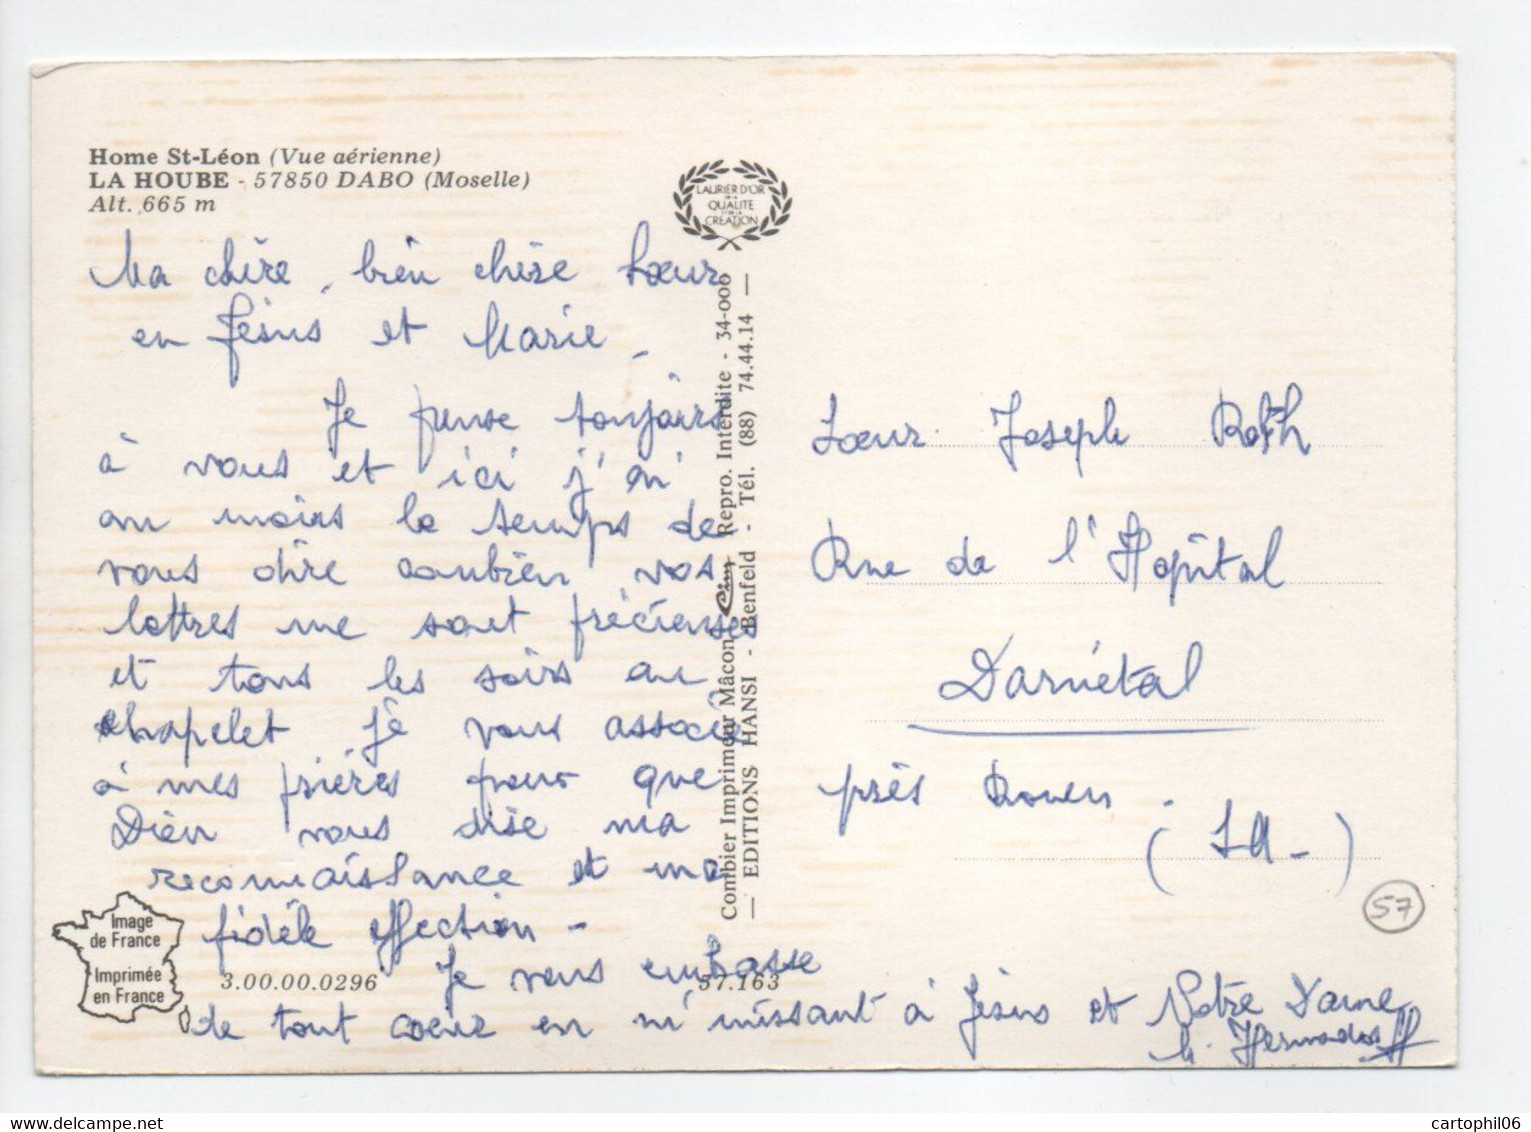 Home St-Léon (Vue aérienne)
LA HOUBE - 57850 DABO (Moselle)
Alt. 665 m
LAURIER D'OR
DE LA
QUALITE
ET DE LA
CREATION
Ma chère, bien chère Soeur
en Jésus et Marie.
Je pense toujours
à vous et ici j'ai
au moins le temps de
vous dire combien vos
lettres me sont précieuses
et tous les soirs au
chapelet je vous associe
à mes prières pour que
Dieu vous dise ma
reconnaissance et ma
fidèle affection -
Je vous embrasse
de tout coeur en m'unissant à Jésus et Notre Dame
Combier Imprimeur Mâcon Cim Repro. Interdite - 34-000
— EDITIONS HANSI - Benfeld - Tél. (88) 74.44.14 —
Soeur Joseph Roth
Rue de l'Hôpital
Darnétal
près Rouen.
(S.M-)
57
Image
de France
Imprimée
en France
3.00.00.0296
57.163
cartophil06